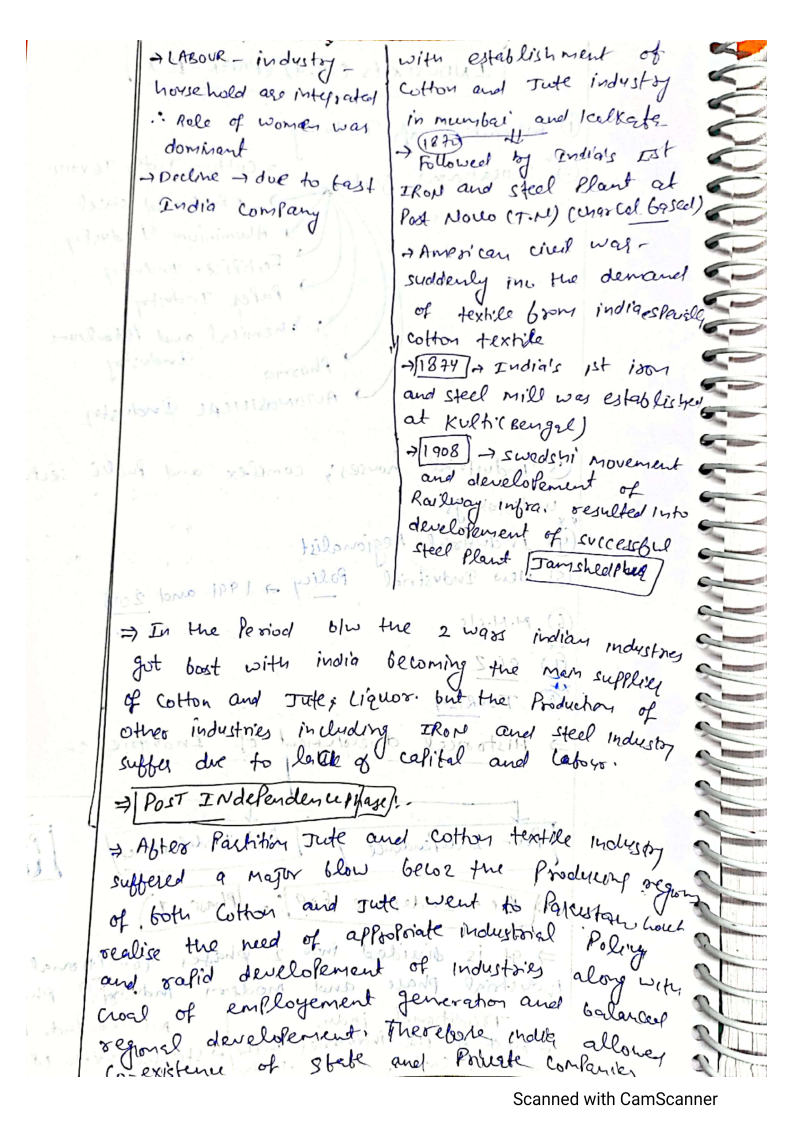 → LABOUR - industry -
household are integrated
∴ Role of women was
dominant
→ Decline → due to East
India Company
with establishment of
Cotton and Jute industry
in mumbai and Kolkata
→ 1870
Followed by India's Ist
IRON and steel Plant at
Port Novo (T.N) (charcol based)
→ American civil war -
suddenly inc the demand
of textile from india especially
cotton textile
→ 1874 → India's 1st iron
and steel mill was established
at Kulti (Bengal)
→ 1908 → swedshi movement
and developement of
Railway infra. resulted into
developement of successful
steel Plant Jamshedpur
⇒ In the Period b/w the 2 wars indian industries
got bost with india becoming the main supplier
of cotton and Jute, Liquor. but the Production of
other industries including IRON and steel industry
suffer due to lack of capital and Labour.
⇒ POST INdependence phase :-
→ After Partition Jute and cotton textile industry
suffered a major blow becoz the Producing regions
of both Cotton and Jute went to Pakistan
realise the need of appropriate industrial Policy
and rapid developement of industries along with
Goal of employement generation and balanced
regional developement. Therefore india allowed
Co-existence of state and Private Companies
Scanned with CamScanner